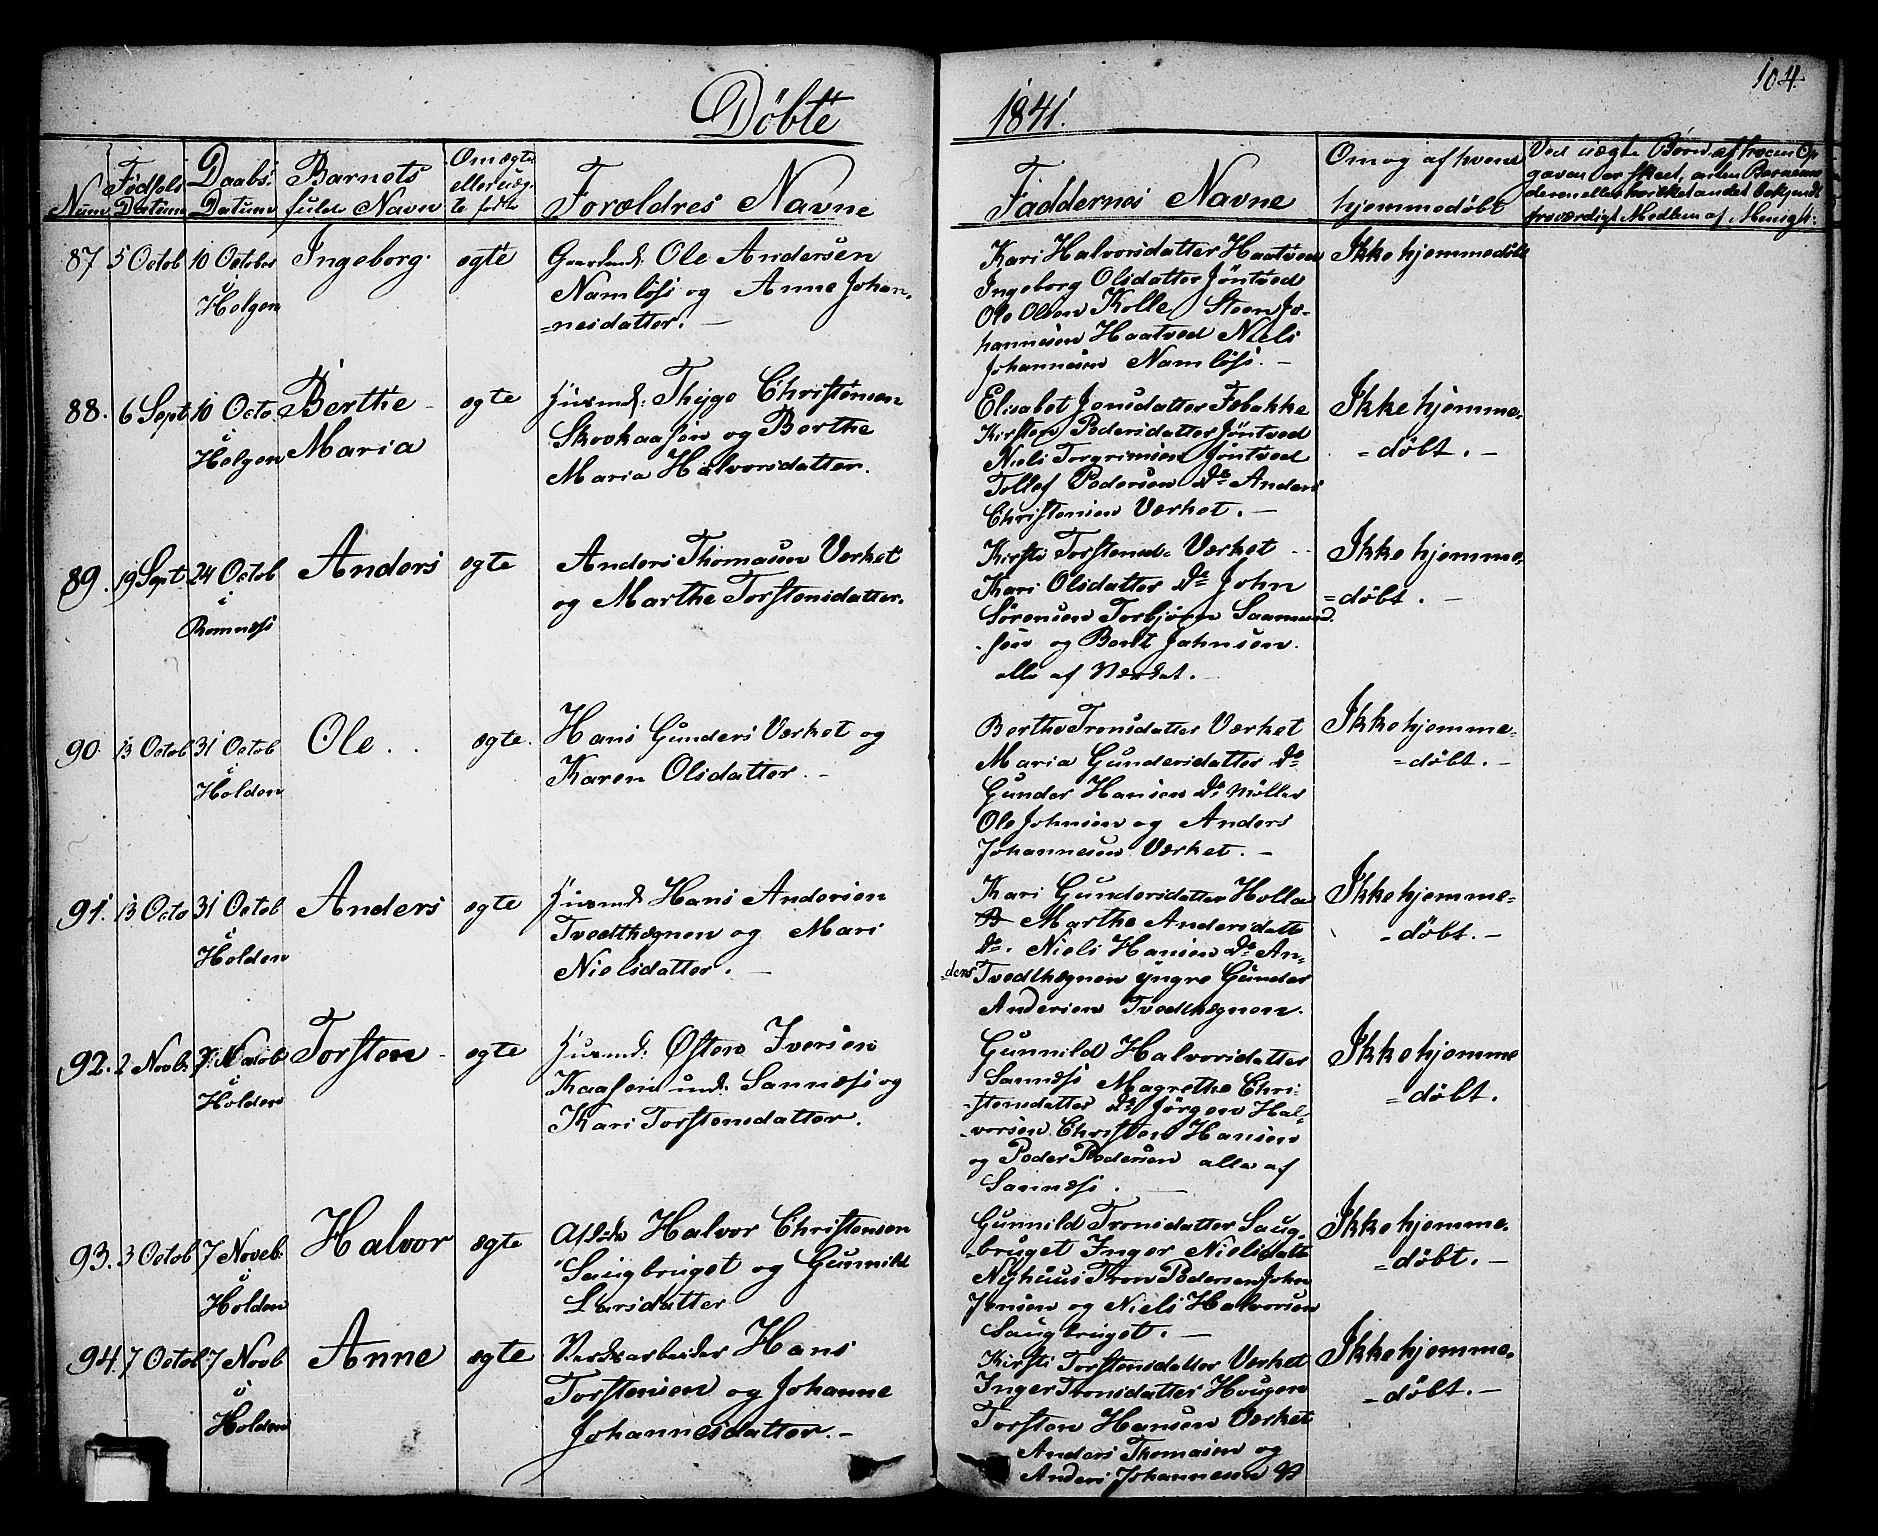 104.
Døbte 1841.
Num
Fødsels Datum
Daabs Datum
Barnets fulde Navn
Om ægte eller uæg- te født
Forældres Navne
Faddernes Navne
Om og af hvem hjemmedøbt
Ved uægte Børn, af hvem Op-
gaven er skeet, om en Barnets
Moder eller hvilket andet bekjendt
troværdigt Medlem af Menigh:
87 5 Octob 10 October i Helgen
Ingeborg.
ægte
Gaardmd. Ole Andersen
Namløs og Anne Johan-
=nesdatter. —
Kari Halvorsdatter Haatved
Ingeborg Olsdatter Jøntved
Ole Olsen Kolle, Steen Jo-
hannesen Haatved Niels
Johannesen Namløs. —
Ikke hjemmedøbt
88. 6 Sept. 10 Octo. i Helgen
Berthe
Maria
ægte
Husmd: Thyge Christensen
Skovkaasen og Berthe
Maria Halvorsdatter.
Elisabet Jensdatter Febakke
Kirsten Pedersdatter Jøntved
Niels Torgrimsen Jøntved
Tollef Pedersen Do Anders
Christensen Værket. —
Ikke hjemme-
=døbt. —
89. 19 Sept 24 Octob i Romnæs
Anders
ægte
Anders Thomasen Værket
og Marthe Torstensdatter.
Kirsti Torstensd= Værket
Kari Olsdatter Do John
Sørensen Torbjørn Saamund
-sen og Bent Jahnsen.
alle af Værket. —
Ikke hjemme-
=døbt. —
90. 13 Octob 31 Octob i Holden
Ole.
ægte.
Hans Gunders Værket og
Karen Olsdatter. —
Berthe Tronsdatter Værket
Maria Gundersdatter Do
Gunder Hansen Do Møller
Ole Johnsen og Anders
Johannesen Værket. —
Ikke hjemme-
=døbt. —
91. 13 Octo 31 Octob i Holden
Anders
ægte
Husmd: Hans Andersen
Tvedthægnen og Mari
Nielsdatter. —
Kari Gundersdatter Holla
Marthe Andersdatte
Do. Niels Hansen Do An-
=ders Tvedthægnen yngre Gunder
Andersen Tvedthægnen.
Ikke hjemme-
=døbt. —
92. 2 Novb. i Holden
Torsten
ægte
Husmd: Østen Iversen
Kaasen und: Sannæs og
Kari Torstensdatter.
Gunnild Halvorsdatter
Sannæs Magrethe Chri-
-stensdatter Do Jørgen Hal-
-vorsen Christen Hansen
og Peder Pedersen alle af
Sannæs.
Ikke hjemme
=døbt.
93. 3 Octob 7 Noveb. i Holden
Halvor
ægte
Halvor Christensen
Saugbruget og Gunnild
Larsdatter
Gunnild Tronsdatter Saug-
=bruget Inger Nielsdatte
Nyhuus Tron Pedersen John
Jensen og Niels Halvorsen
Saugbruget. —
Ikke hjemme-
=døbt. —
94. 7 Octob 7 Novb i Holden
Anne
ægte
Verksarbeider Hans
Torstensen og Johanne
Johannesdatter. —
Kirsti Torstensdatter Værket
Inger Tronsdatter Hougen
Torsten Hansen Værket
Anders Thomasen og
Anders Johannesen
Ikke hjemme-
=døbt. —